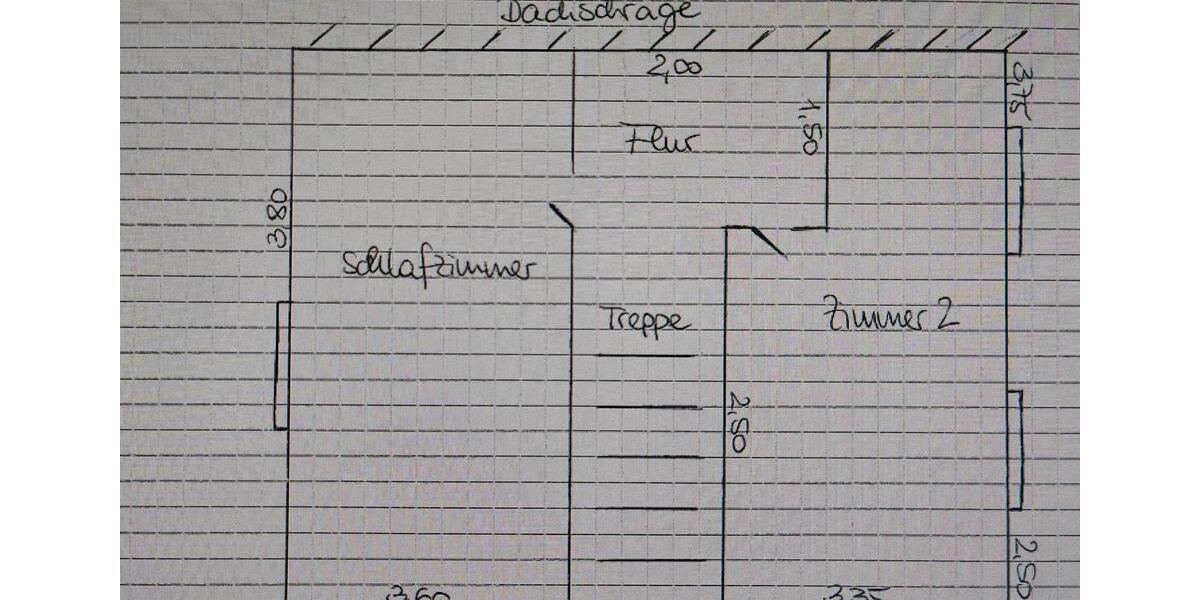 Dachschräge
2,00
3,75
1,50
Flur
3,80
Schlafzimmer
Treppe
Zimmer 2
2,50
2,50
3,60
3,35